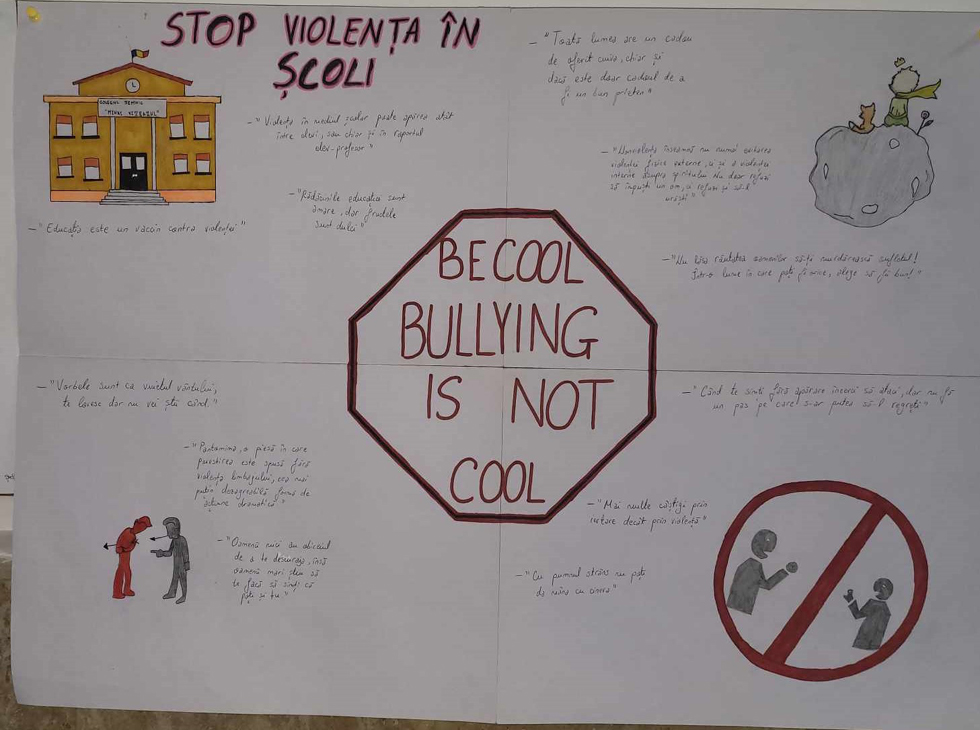 STOP VIOLENȚA ÎN
ȘCOLI
COLEGIUL TEHNIC
"MIHAI VITEAZUL"
- "Violența în mediul școlar poate apărea atât
între elevi, sau chiar și în raportul
elev-profesor"
- "Rădăcinile educației sunt
amare, dar fructele
sunt dulci"
- "Educația este un vaccin contra violenței"
- "Toată lumea are un cadou
de oferit cuiva, chiar și
dacă este doar cadoul de a
fi un bun prieten"
- "Nonviolența înseamnă nu numai evitarea
violenței fizice externe, ci și a violenței
interne asupra spiritului. Nu doar refuzi
să împuști un om, ci refuzi și să-l
urăști!"
- "Nu lăsa răutatea oamenilor să-ți murdărească sufletul!
Într-o lume în care poți fi orice, alege să fii bun!"
BE COOL
BULLYING
IS NOT
COOL
- "Vorbele sunt ca vuietul vântului,
te lovesc dar nu vei ști când."
- "Pantomima, o piesă în care
povestirea este spusă fără
violența limbajului, cea mai
puțin dezagreabilă formă de
acțiune dramatică"
- "Oamenii mici au obiceiul
de a te descuraja, însă
oamenii mari știu să
te facă să simți că
poți și tu"
- "Când te simți fără apărare încerci să ataci, dar nu fă
un pas pe care s-ar putea să-l regreți"
- "Mai multe câștigi prin
iertare decât prin violență"
- "Cu pumnul strâns nu poți
da mâna cu cineva"